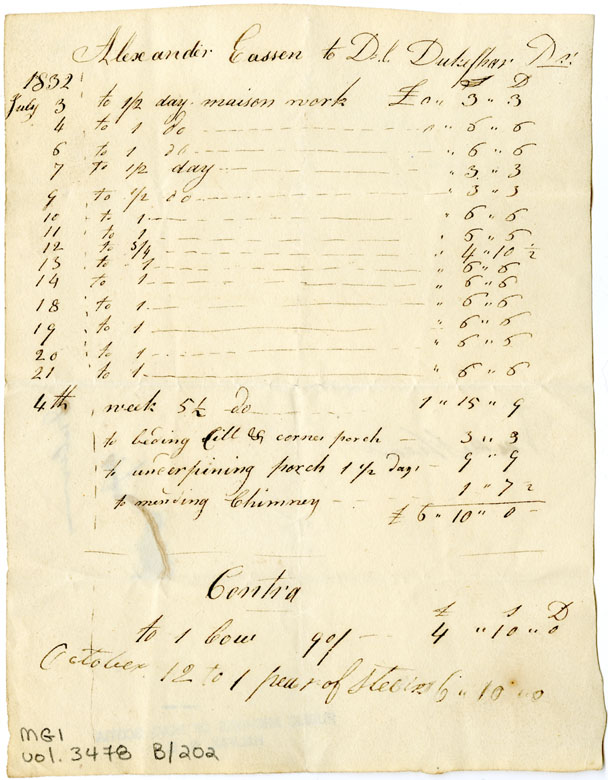 Alexander Eassen to Dd. Dukeshar Dr.
1832 £ S D
July 3 to 1/2 day maison work £ 0 " 3 " 3
4 to 1 do " 6 " 6
6 to 1 do " 6 " 6
7 to 1/2 day " 3 " 3
9 to 1/2 do " 3 " 3
10 to 1 " 6 " 6
11 to 1 " 6 " 6
12 to 3/4 " 4 " 10 1/2
13 to 1 " 6 " 6
14 to 1 " 6 " 6
18 to 1 " 6 " 6
19 to 1 " 6 " 6
20 to 1 " 6 " 6
21 to 1 " 6 " 6
4th week 5 1/2 do 1 " 15 " 9
to beding Cill & corner porch 3 " 3
to underpining porch 1 1/2 days 9 " 9
to mending Chimney 1 " 7 1/2
£ 6 " 10 " 0
Contra
£ S D
to 1 Cow 90/ 4 " 10 " 0
October 12 to 1 pear of Steers 6 " 10 " 0
MG1
vol. 3478 B/202